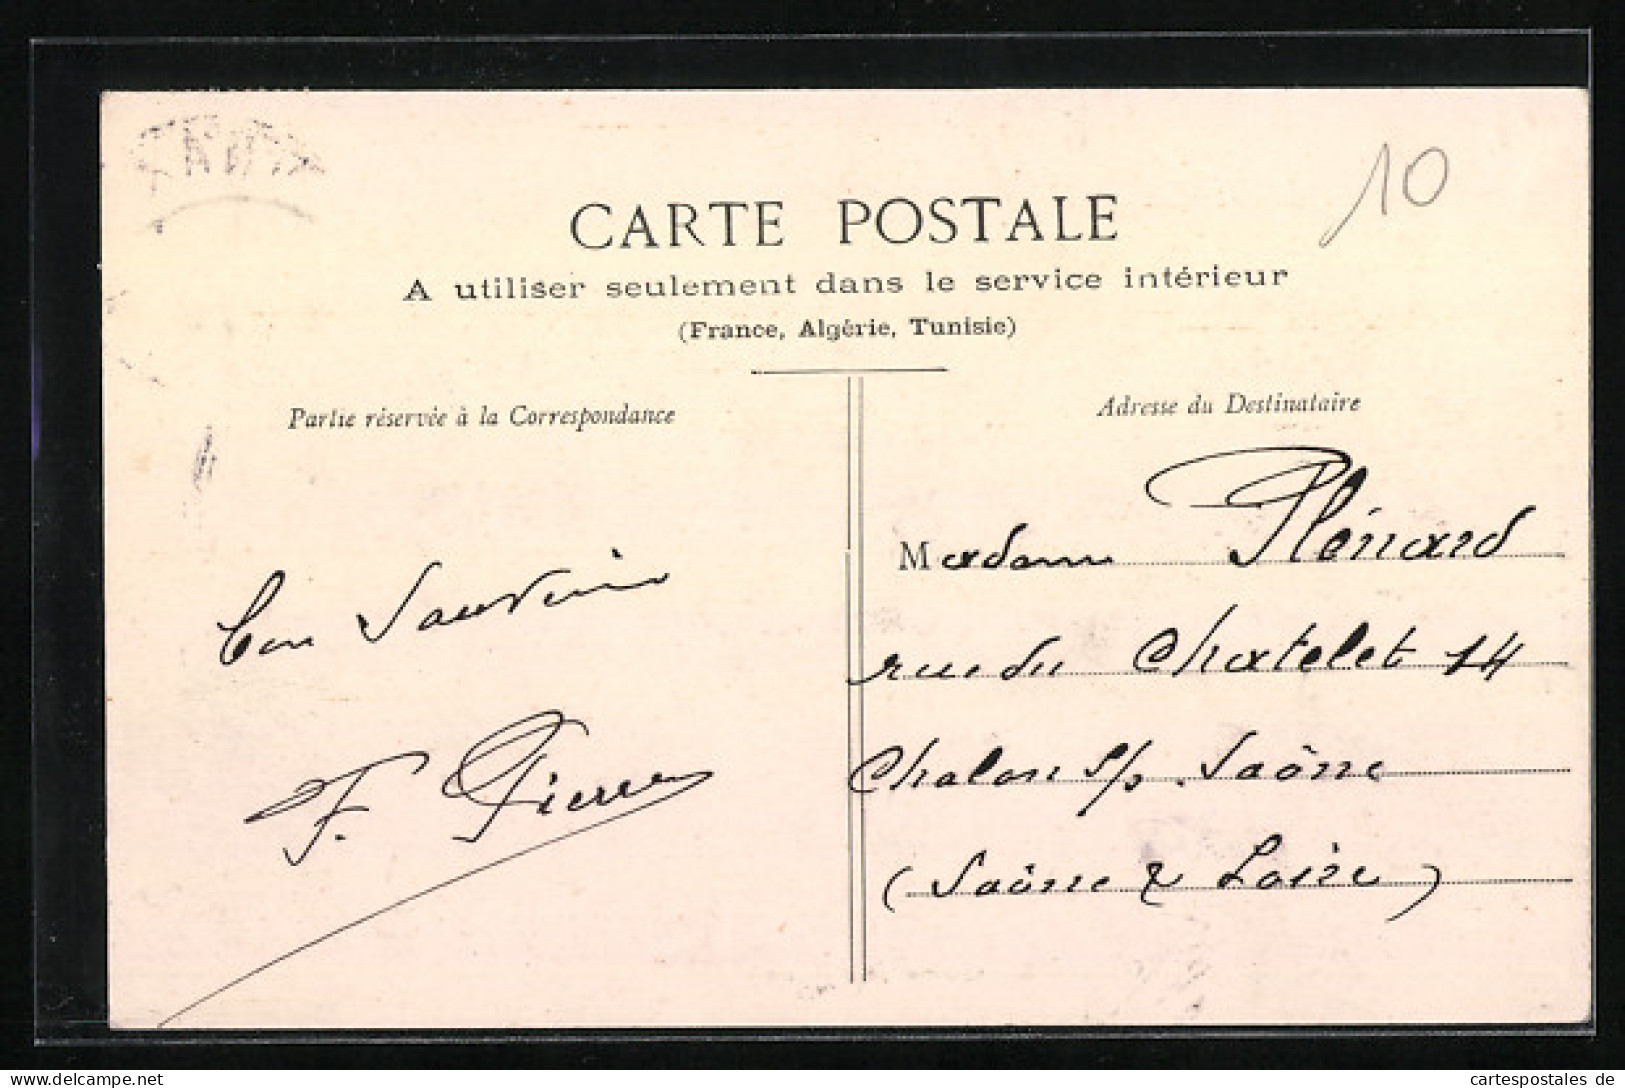 10
CARTE POSTALE
A utiliser seulement dans le service intérieur
(France, Algérie, Tunisie)
Partie réservée à la Correspondance
Bon Souvenir
F. Pierre
Adresse du Destinataire
Madame Plénard
rue du Chatelet 14
Chalon s/s. Saône
(Saône & Loire)
www.cartespostales.de
cartespostales de